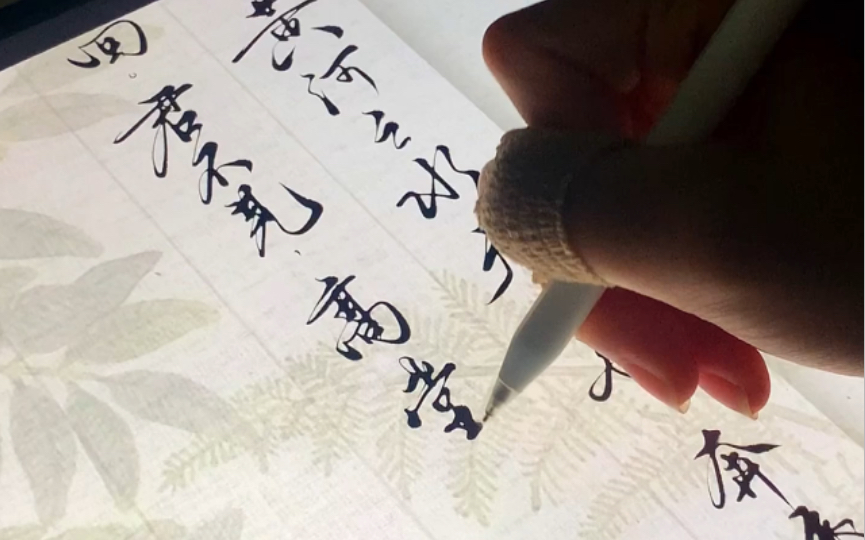 黄河之水奔
回。君不見、高堂